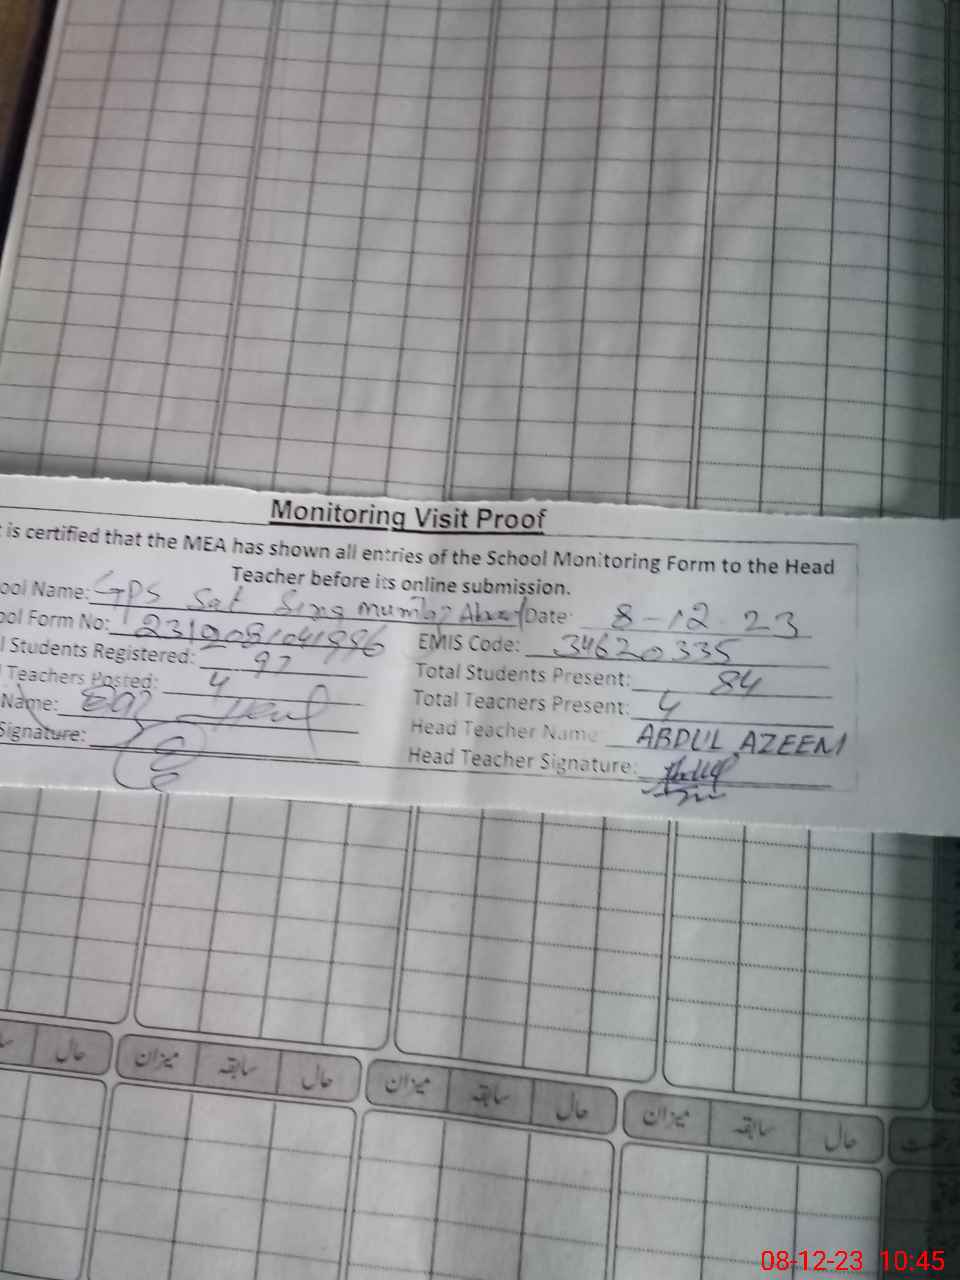 Monitoring Visit Proof
t is certified that the MEA has shown all entries of the School Monitoring Form to the Head
Teacher before its online submission.
ool Name: GPS Sat Sing Mumtaz Abad Date: 8-12-23
ool Form No: EMIS Code: 34620335
l Students Registered: 97 Total Students Present: 84
Teachers Posted: 4 Total Teachers Present: 4
Name: Head Teacher Name: ABDUL AZEEM
Signature: Head Teacher Signature:
حال میزان سابقہ حال میزان سابقہ حال میزان سابقہ حال
08-12-23 10:45